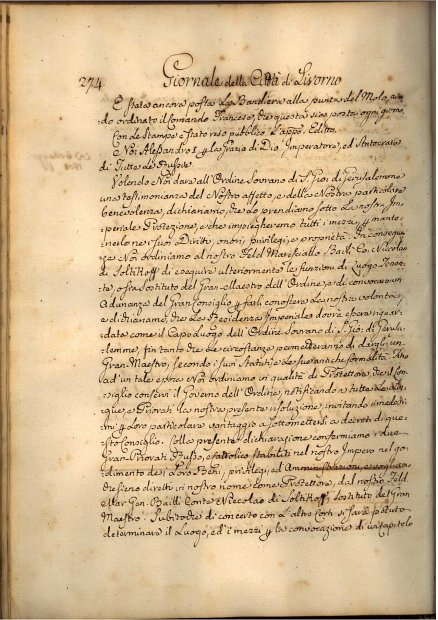 274 Giornale della Città di Livorno
È stata ancora posta La Bandiera alla punta del Molo,
do ordinato il Comando Francese, che questa sia posta ogni giorno.
Con Le Stampe è stato reso pubblico L'app.o Editto.
Noi Alessandro I. p La Grazia di Dio Imperatore, ed Autocrate
di Tutte Le Russie.
Volendo Noi dare all'Ordine Sovrano di S. Gio: di Gerusalemme
una testimonianza del Nostro affetto, e della Nostra particolare
benevolenza, dichiariamo, che Lo prendiamo sotto La nostra Im-
periale Protezione, e che impiegheremo tutti i mezzi p mante-
nerlo ne' suoi Diritti, onori, privilegi, e proprietà. In conseguen-
za Noi ordiniamo al nostro Feld Maresciallo Bailì Co. Niccolao
di Soltikoff di eseguire ulteriormente Le funzioni di Luogo Tenen-
te, o sia Sostituto del Gran Maestro dell'Ordine, e di convocare un
Adunanza del Gran Consiglio p farli conoscere La nostra volontà,
e dichiarare, che La Residenza Imperiale dovrà essere riguar-
data come il Capo Luogo dell'Ordine Sovrano di S. Gio: di Gerusa-
lemme, fin tanto che Le circostanze permetteranno di eleggere un
Gran Maestro, secondo i suoi Statuti, e Le sue antiche formalità. Fino
ad un tale epoca Noi ordiniamo in qualità di Protettore, che il Con-
siglio conservi il Governo dell'Ordine, notificando a tutte Le Lin-
gue, e Priorati La nostra presente risoluzione, invitando i medesi-
mi p Loro particolare vantaggio a sottomettersi a' decreti di que-
sto Consiglio. Colla presente dichiarazione confermiamo i due
Gran Priorati Russo, e Cattolico stabiliti nel nostro Impero nel go-
dimento de' Loro Beni, privilegi, ed Amministrazioni, e vogliamo
che sieno diretti in nostro nome come Protettore, dal nostro Feld
Mar. Gen. Bailli Conte Niccolao di Soltikoff Sostituto del Gran
Maestro. Subito che di concerto con L'altre Corti si sarà potuto
determinare il Luogo, ed i mezzi p La convocazione di un Capitolo